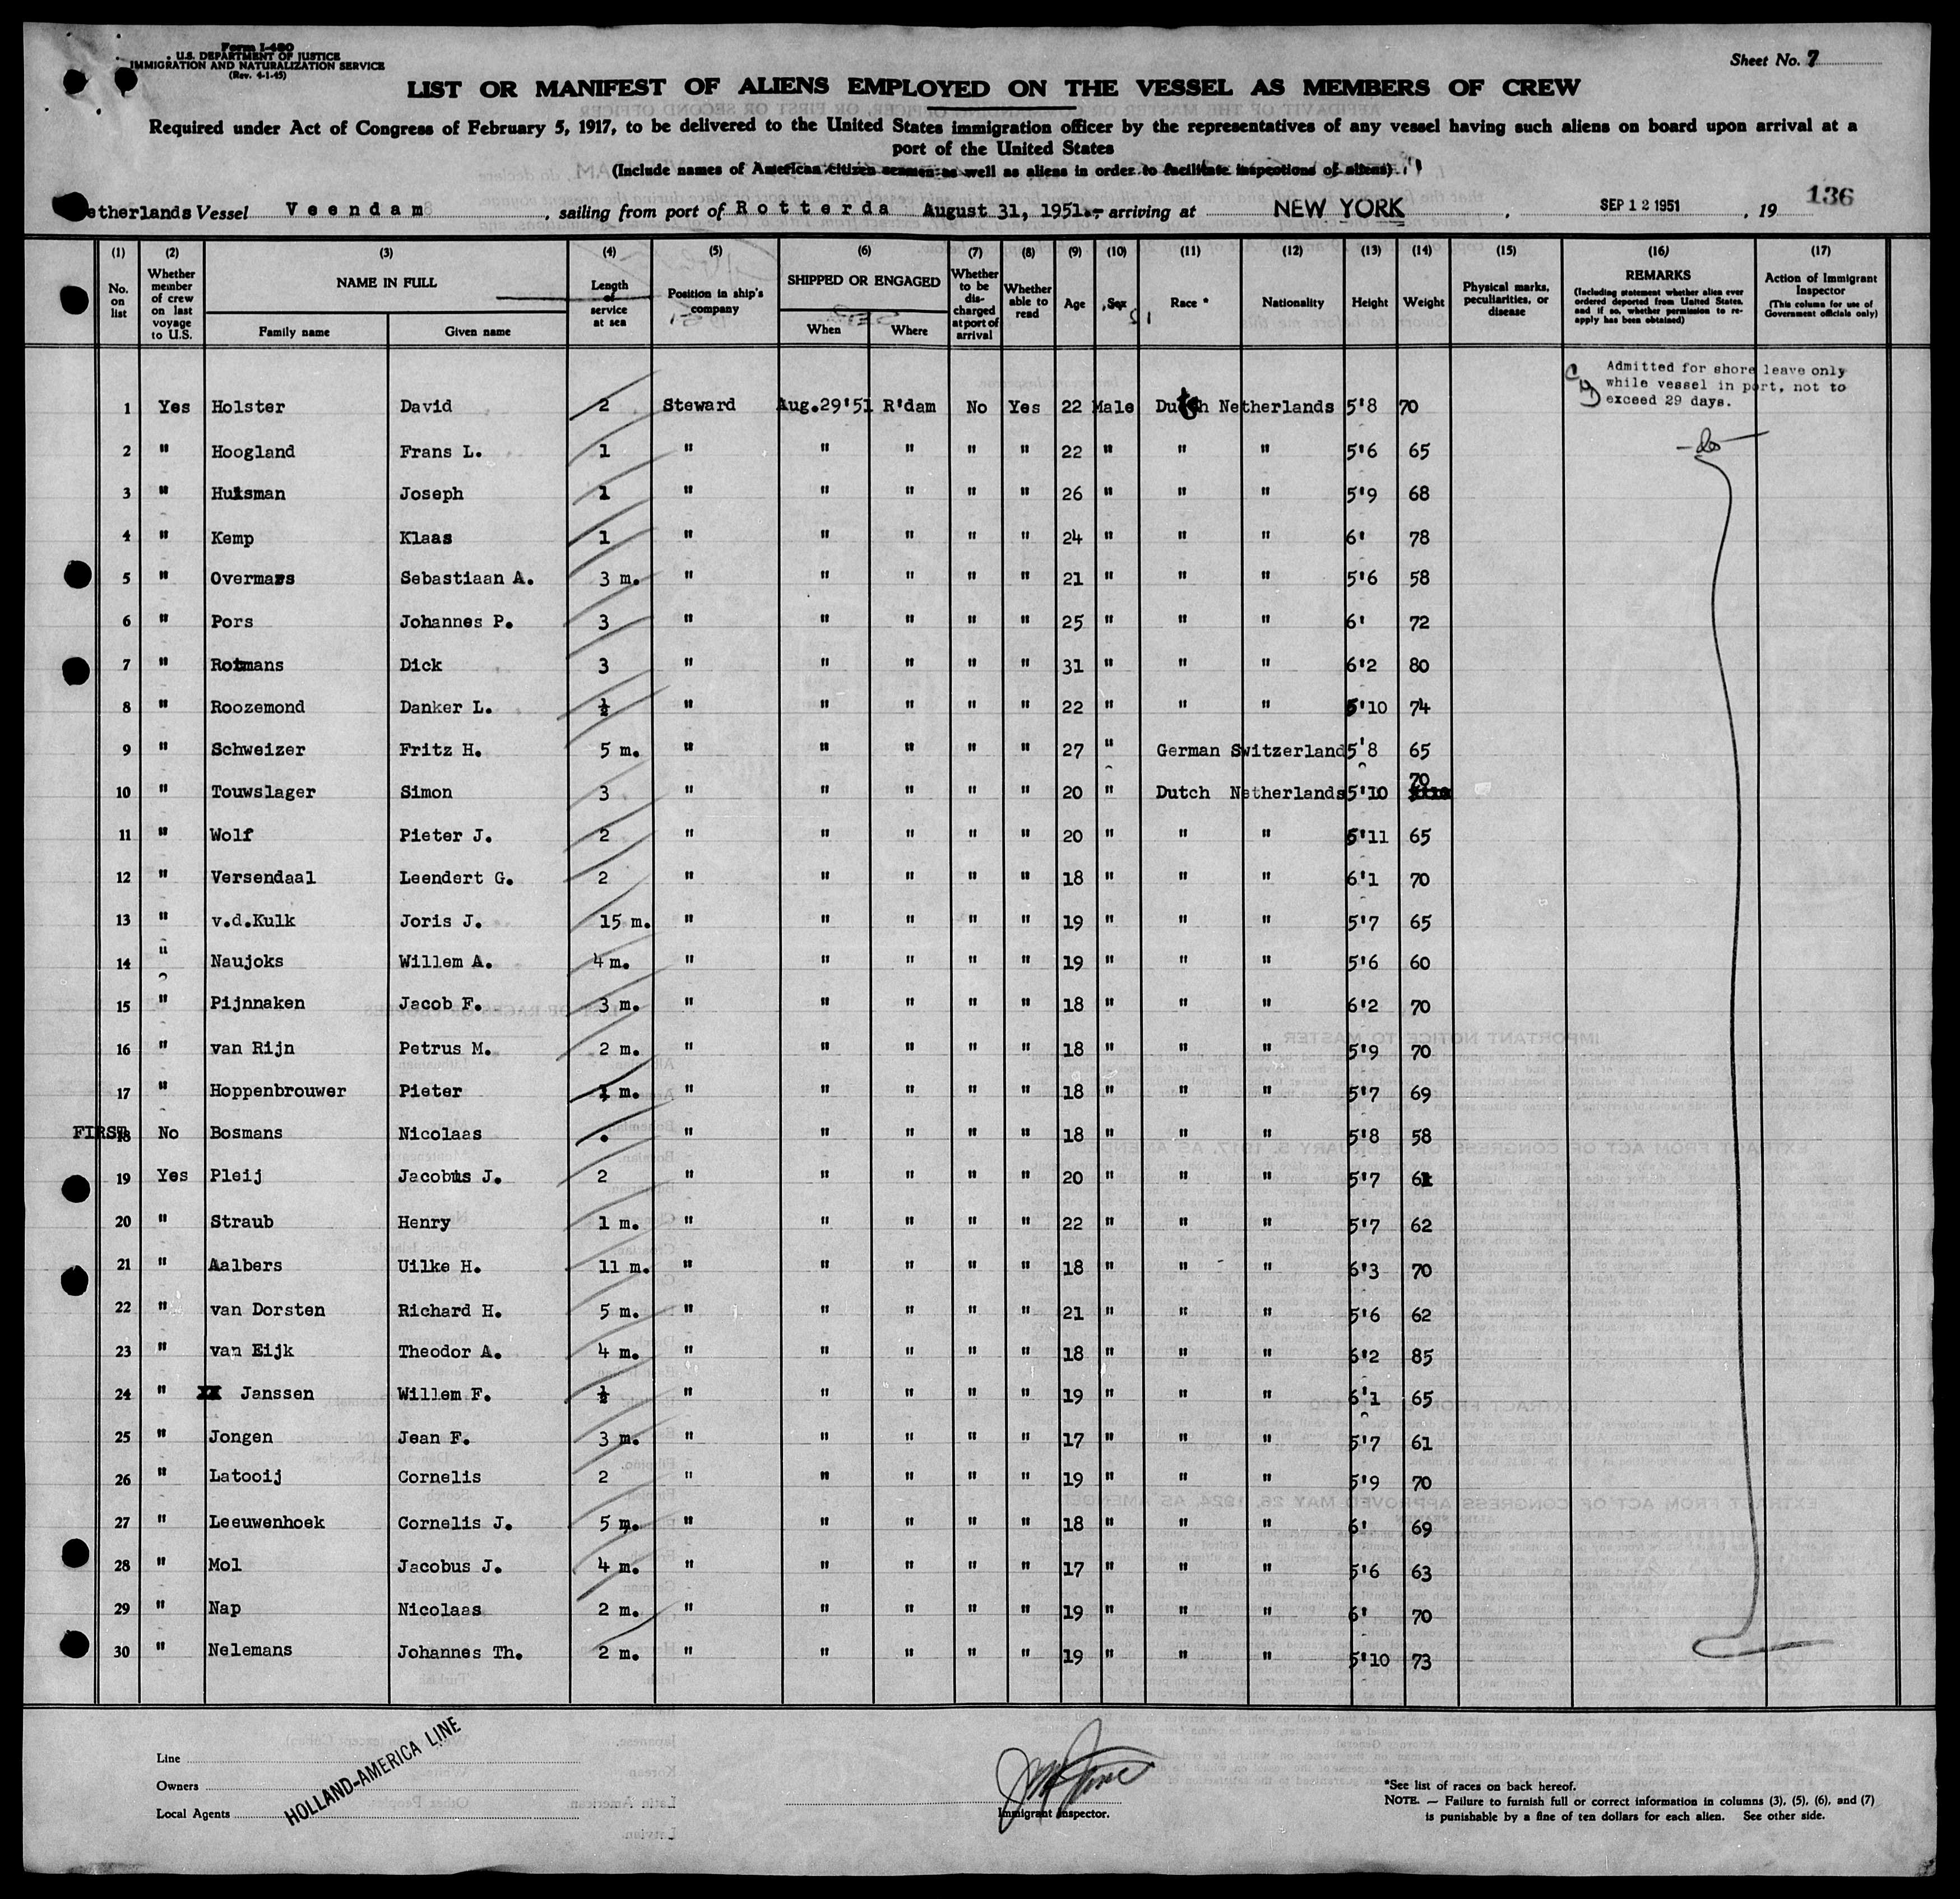 Form I-480
U.S. DEPARTMENT OF JUSTICE
IMMIGRATION AND NATURALIZATION SERVICE
(Rev. 4-1-45)
Sheet No. 7
LIST OR MANIFEST OF ALIENS EMPLOYED ON THE VESSEL AS MEMBERS OF CREW
Required under Act of Congress of February 5, 1917, to be delivered to the United States immigration officer by the representatives of any vessel having such aliens on board upon arrival at a
port of the United States
(Include names of American citizen seamen as well as aliens in order to facilitate inspections of aliens)
136
etherlands Vessel Veendam, sailing from port of Rotterda August 31, 1951 arriving at NEW YORK, SEP 12 1951, 19
(1) (2) (3) (4) (5) (6) (7) (8) (9) (10) (11) (12) (13) (14) (15) (16) (17)
No. on list
Whether member of crew on last voyage to U.S.
NAME IN FULL
Family name Given name
Length of service at sea
Position in ship's company
SHIPPED OR ENGAGED
When Where
Whether to be discharged at port of arrival
Whether able to read
Age
Sex
Race *
Nationality
Height
Weight
Physical marks, peculiarities, or disease
REMARKS
(Including statement whether alien ever ordered deported from United States, and if so, whether permission to re-apply has been obtained)
Action of Immigrant Inspector
(This column for use of Government officials only)
Admitted for shore leave only
while vessel in port, not to
exceed 29 days.
1 Yes Holster David 2 Steward Aug.29'51 R'dam No Yes 22 Male Dutch Netherlands 5'8 70
2 " Hoogland Frans L. 1 " " " " " 22 " " " 5'6 65 -do-
3 " Huisman Joseph 1 " " " " " 26 " " " 5'9 68
4 " Kemp Klaas 1 " " " " " 24 " " " 6' 78
5 " Overmars Sebastiaan A. 3 m. " " " " " 21 " " " 5'6 58
6 " Pors Johannes P. 3 " " " " " 25 " " " 6' 72
7 " Rotmans Dick 3 " " " " " 31 " " " 6'2 80
8 " Roozemond Danker L. ½ " " " " " 22 " " " 5'10 74
9 " Schweizer Fritz H. 5 m. " " " " " 27 " German Switzerland 5'8 65
10 " Touwslager Simon 3 " " " " " 20 " Dutch Netherlands 5'10 70
11 " Wolf Pieter J. 2 " " " " " 20 " " " 5'11 65
12 " Versendaal Leendert G. 2 " " " " " 18 " " " 6'1 70
13 " v.d.Kulk Joris J. 15 m. " " " " " 19 " " " 5'7 65
14 " Naujoks Willem A. 4 m. " " " " " 19 " " " 5'6 60
15 " Pijnnaken Jacob F. 3 m. " " " " " 18 " " " 6'2 70
16 " van Rijn Petrus M. 2 m. " " " " " 18 " " " 5'9 70
17 " Hoppenbrouwer Pieter m. " " " " " 18 " " " 5'7 69
FIRST 18 No Bosmans Nicolaas . " " " " " 18 " " " 5'8 58
19 Yes Pleij Jacobus J. 2 " " " " " 20 " " " 5'7 61
20 " Straub Henry 1 m. " " " " " 22 " " " 5'7 62
21 " Aalbers Uilke H. 11 m. " " " " " 18 " " " 6'3 70
22 " van Dorsten Richard H. 5 m. " " " " " 21 " " " 5'6 62
23 " van Eijk Theodor A. 4 m. " " " " " 18 " " " 6'2 85
24 " Janssen Willem F. ½ " " " " " 19 " " " 6'1 65
25 " Jongen Jean F. 3 m. " " " " " 17 " " " 5'7 61
26 " Latooij Cornelis 2 " " " " " 19 " " " 5'9 70
27 " Leeuwenhoek Cornelis J. 5 m. " " " " " 18 " " " 6' 69
28 " Mol Jacobus J. 4 m. " " " " " 17 " " " 5'6 63
29 " Nap Nicolaas 2 m. " " " " " 19 " " " 6' 70
30 " Nelemans Johannes Th. 2 m. " " " " " 19 " " " 5'10 73
Line
Owners
Local Agents
HOLLAND-AMERICA LINE
Immigrant Inspector.
*See list of races on back hereof.
NOTE. — Failure to furnish full or correct information in columns (3), (5), (6), and (7)
is punishable by a fine of ten dollars for each alien. See other side.